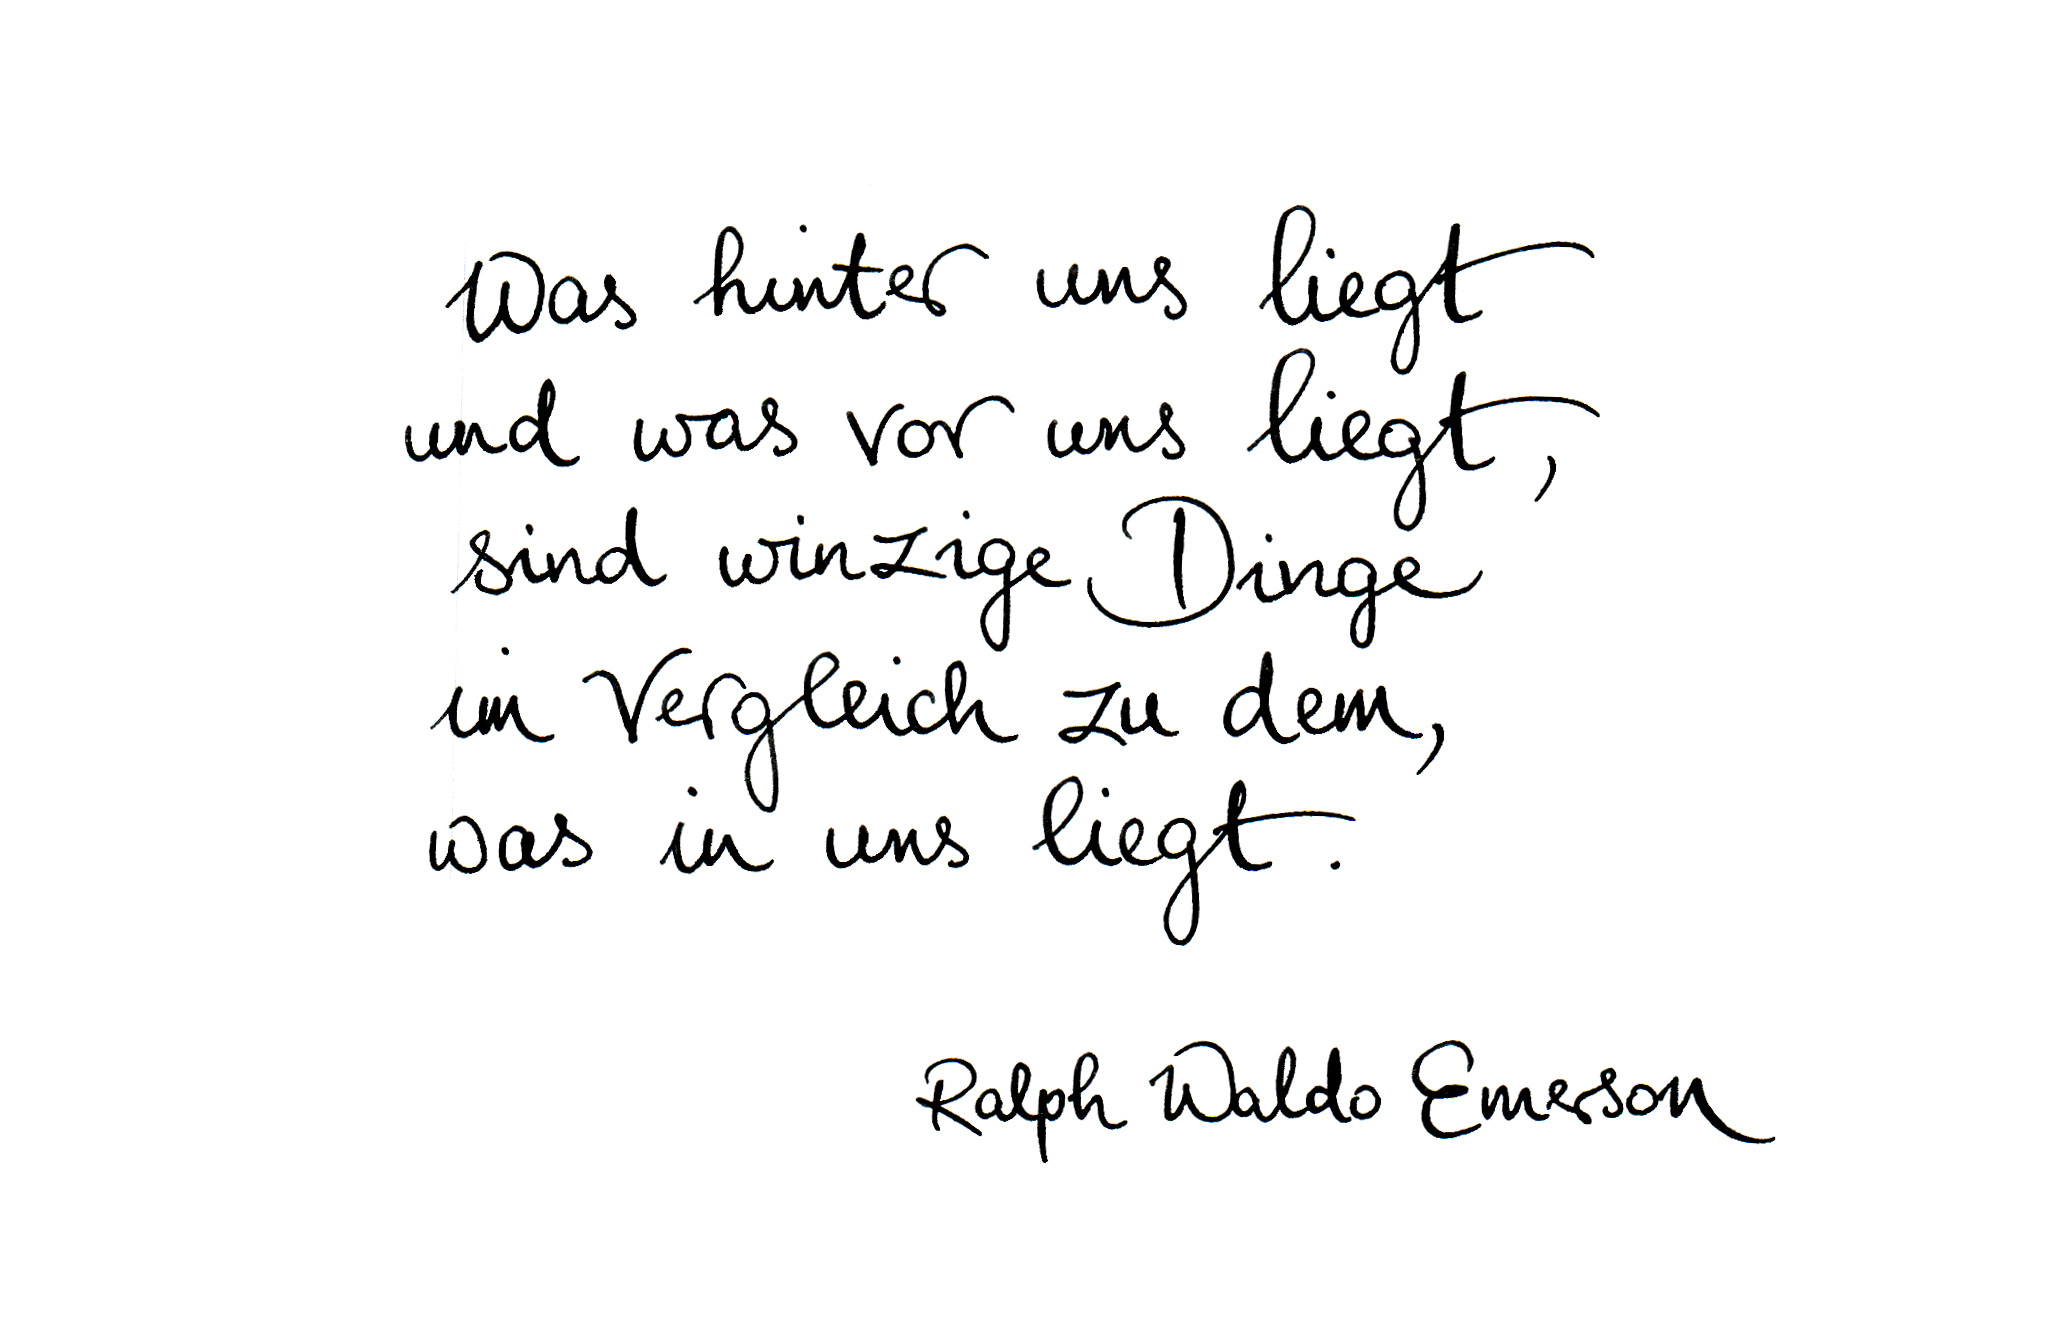 Was hinter uns liegt
und was vor uns liegt,
sind winzige Dinge
im Vergleich zu dem,
was in uns liegt.
Ralph Waldo Emerson